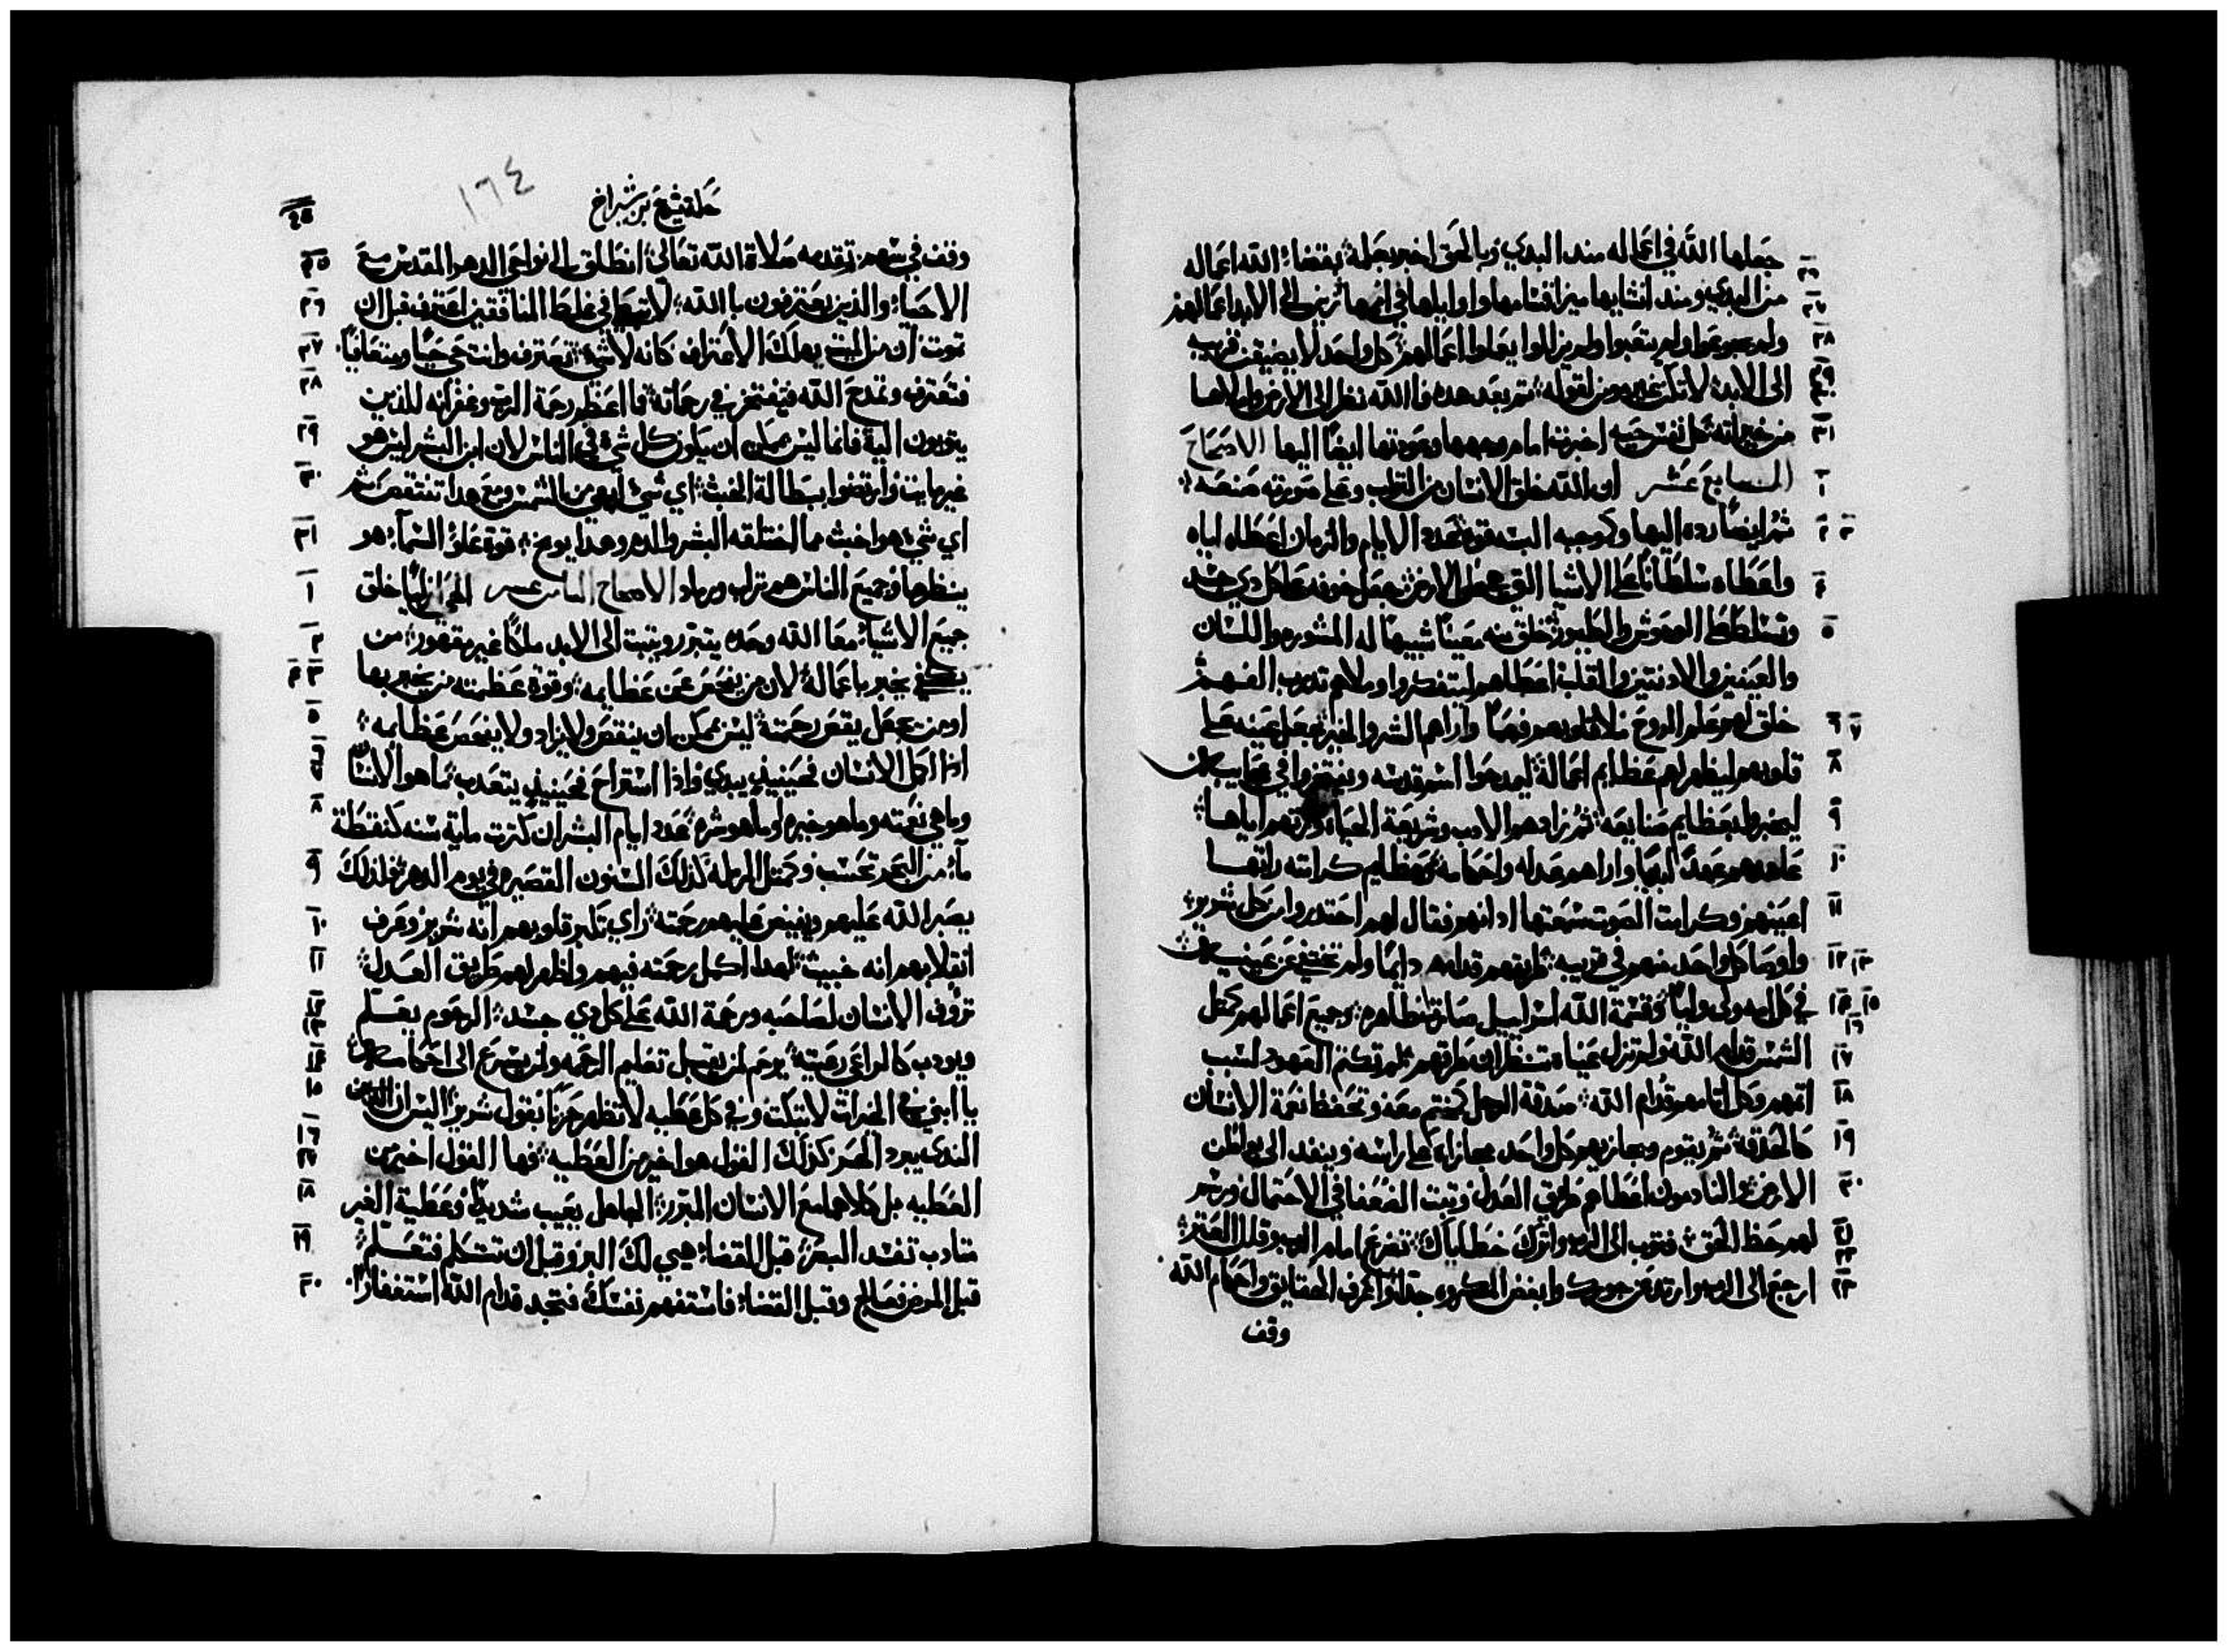 جعلها الله في اعماله منذ البدي وبالحق اخبر بجملة بقضاء الله اعماله
من البدي ومنذ انشايها ميز اقسامها واوايلها في اممها زين الى الابد اعمالهم
ولم يجوعوا ولم يتعبوا ولم يزالوا يعملوا اعمالهم كل واحد لا يضيق قريبه
الى الابد لا تكن غير مومن لقوله ثم بعد هذه فالله نظر الى الارض واملاها
من خيراته كل نفس حيه اخبرت امام وجهها وعودتها ايضا اليها الاصحاح
السابع عشر ان الله خلق الانسان من التراب وعلى صورته صنعه
ثم ايضا رده اليها وكوجبه البسه قوة عدد الايام والزمان اعطاه اياه
واعطاه سلطانا على الاشيا التي على الارض جعل خوفه على كل دي جسد
وتسلط على الوحوش والطيور خلق منه معينا شبيها له المشوره واللسان
والعينين والادنين والقلب اعطاهم ليتفكروا وملاهم تدرب الفهم
خلق لهم علم الروح ملا قلوبهم فهما واراهم الشر والخير جعل عينه على
قلوبهم ليظهر لهم عظايم اعماله ليمدحوا اسم قدسه ويفتخروا في عجايبه
ليخبروا بعظايم صنايعه ثم زادهم الادب وشريعة الحياه ورثهم اياها
عاهدهم عهدا ابديا واراهم عدله واحكامه وعظايم كرامته راتها
اعينهم وكرامت الصوت سمعتها ادانهم فقال لهم احتدروا من كل شرير
واوصا كل واحد منهم في قريبه طرقهم قدامه دايما ولم تختفي عن عينيه
في كل امه ولى واليا وقسمة الله اسراييل صارة ظاهره وجميع اعمالهم كمثل
الشمس قدام الله ولم تزل عيناه تنظران طرقهم فلم تكتم العهود لسبب
اثمهم وكل اتامهم قدام الله صدقة الرجل كختم معه وتحفظ نعمة الانسان
كالحدقه ثم يقوم ويجازيهم كل واحد مجازاه على راسه وينفد الى بواطن
الارض النادمون اعطاهم طريق العدل وثبت الضعفا في الاحتمال ورسم
لهم حظ الحق فتوب الى الرب واترك خطاياك تضرع امام الرب وقلل العثر
ارجع الى الرب وارتد عن جورك وابغض المكروه جدا واعرف الحقايق واحكام الله
وقف
حكمة يشوع بن شيراخ
١٦٤
وقف في سهم تقدمه صلاة الله تعالى انطلق الى نواحي الدهر المقدس مع
الاحياء والذين يعترفون بالله لا تبطا في غلط المنافقين اعترف قبل ان
تموت ان من الميت يهلك الاعتراف كانه لا شي تعترف وانت حي حيا ومتعافيا
فتعترف وتمدح الله فتفتخر في رحماته ما اعظم رحمة الرب وغفرانه للذين
يتوبون اليه فانما ليس ممكن ان يكون كل شي في الناس لان ابن البشر ليس هو
غير مايت وارتضوا ببطالة الخبث اي شي ابهى من الشمس ومع هذا تنتقص
اي شي هو اخبث مما اختلقه البشر والدم وهدا يوبخ قوة علو السماء هو
ينظرها وجميع الناس هم تراب ورماد الاصحاح الثامن عشر الحي ازليا خلق
جميع الاشياء معا الله وحده يتبرر ويثبت الى الابد ملكا غير مقهور من
يكفي يخبر باعماله لان من يفحص عن عظايمه وقوة عظمته من يخبر بها
او من يجعل يقص رحمته ليس ممكن ان ينقص ولا يزاد ولا يفحص عظايمه
اذا اكمل الانسان فحينيذ يبدي واذا استراح فحينيذ يتعذب ما هو الانسان
وما هي نعمته وما هو خيره وما هو شره عدد ايام البشر ان كثرت ماية سنه كنقطة
ماء من البحر تحسب وكمثل الرمله كذلك السنون القصيره في يوم الدهر فلذلك
يصبر الله عليهم ويفيض عليهم رحمته راي تكبر قلوبهم انه شرير وعرف
انقلابهم انه خبيث لهدا اكمل رحمته فيهم واظهر لهم طريق العدل
تروف الانسان لصاحبه ورحمة الله على كل دي جسد الرحوم يعلم
ويودب كالراعي رعيته يرحم لمن يقبل تعليم الرحمه ولمن يسرع الى احكامه
يا ابني مع الخيرات لا تبكت وفي كل عطيه لا تظهر حزنا بقول شرير اليس ان
الندى يبرد الحر كذلك القول هو اخير من العطيه فها القول اخير من
العطيه بل كلاهما مع الانسان المتبرر الجاهل يعيب شديدا وعطية الغير
متادب تفسد البصر قبل القضاء هيي لك البر وقبل ان تتكلم فتعلم
قبل المرض فعالج وقبل القضاء فاستفهم نفسك فتجد قدام الله استغفارا